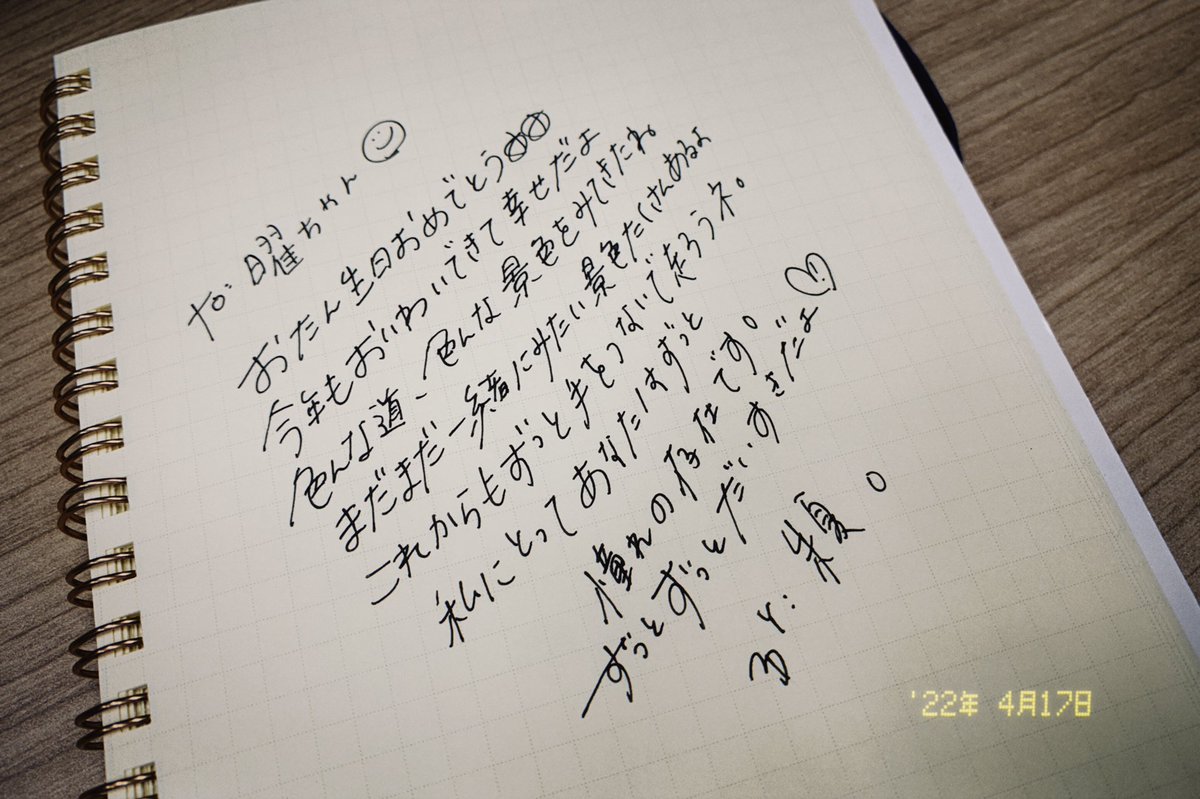 to: 曜ちゃん
おたん生日おめでとう
今年もおいわいできて幸せだよ
色んな道、色んな景色をみてきたね
まだまだ一緒にみたい景色たくさんあるよ
これからもずっと手をつないで走ろうネ。
私にとってあなたはずっと
憧れの存在です。
ずっとずっとだいすきだよ♡
By: 朱夏。
'22年 4月17日